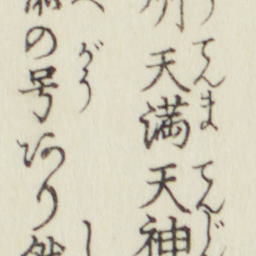 天満天神
てんま てんじ
の号あり
がう